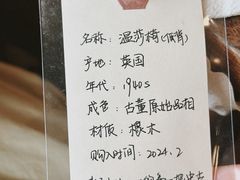 名称：温莎椅（低背）
产地：英国
年代：1940s
成色：古董原始品相
材质：橡木
购入时间：2024.2